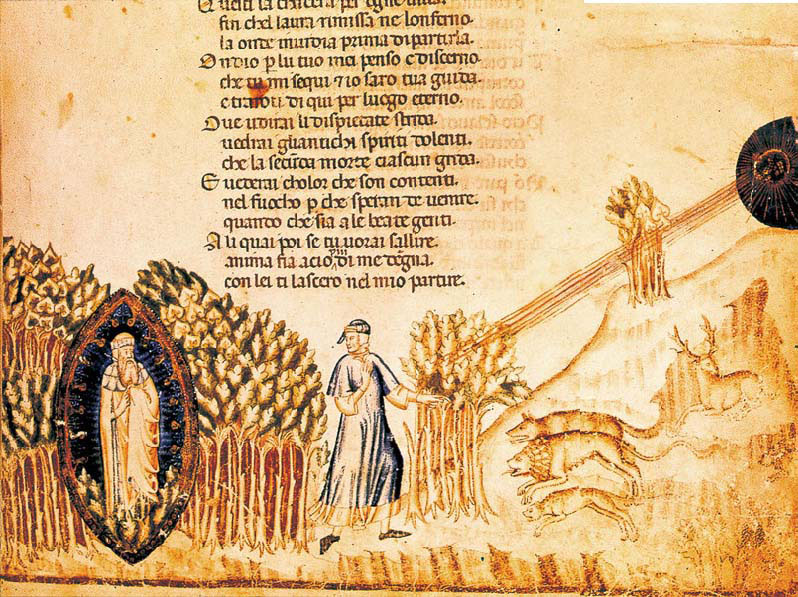 per ogne
fin chel laura rimissa ne lonferno.
la onde inuidia prima di partirla.
Ondio p lu tuo mei penso e discerno.
che tu mi sequi ⁊ io saro tua guida.
e trarotti di qui per luogo eterno.
Oue udirai li dispiecate strida.
uedrai gliantichi spiriti dolenti.
che la secunda morte ciascun grida.
E uederai cholor che son contenti.
nel fuocho p che speran de uenire.
quando che sia a le beate genti.
A li quai poi se tu uorai sallire.
anima fia acio di me degna.
con lei ti lascero nel mio partire.